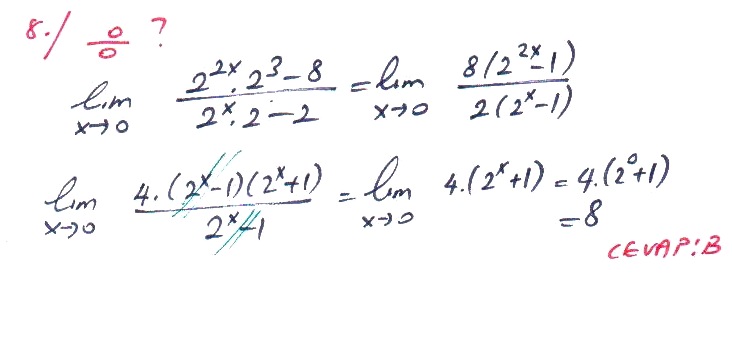 8./ 0/0 ?
lim x→0 (2^{2x}.2^3-8)/(2^x.2-2) = lim x→0 8(2^{2x}-1)/2(2^x-1)
lim x→0 4.(2^x-1)(2^x+1)/(2^x-1) = lim x→0 4.(2^x+1) = 4.(2^0+1)
=8
CEVAP:B